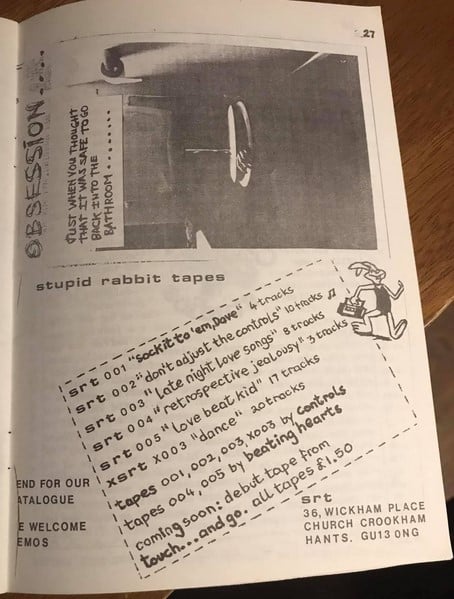 27
OBSESSION.....
JUST WHEN YOU THOUGHT
THAT IT WAS SAFE TO GO
BACK INTO THE
BATHROOM........
stupid rabbit tapes
srt 001 "sock it to 'em, Dave" 4 tracks
srt 002 "don't adjust the controls" 10 tracks
srt 003 "late night love songs" 8 tracks
srt 004 "retrospective jealousy" 3 tracks
srt 005 "love beat kid" 17 tracks
xsrt X003 "dance" 20 tracks
tapes 001, 002, 003, X003 by controls
tapes 004, 005 by beating hearts
coming soon: debut tape from
touch...and go. all tapes £1.50
END FOR OUR
ATALOGUE
E WELCOME
EMOS
srt
36, WICKHAM PLACE
CHURCH CROOKHAM
HANTS. GU13 0NG